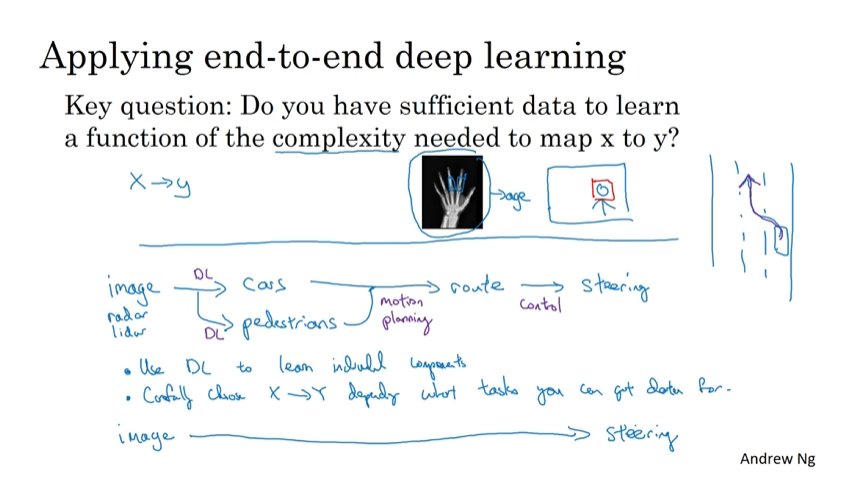 Applying end-to-end deep learning
Key question: Do you have sufficient data to learn
a function of the complexity needed to map x to y?
X → y
→ age
DL
image → cars → route → steering
radar
lidar
DL
pedestrians
motion
planning
control
• Use DL to learn individual components
• Carefully choose X → Y depending what tasks you can get data for.
image → steering
Andrew Ng